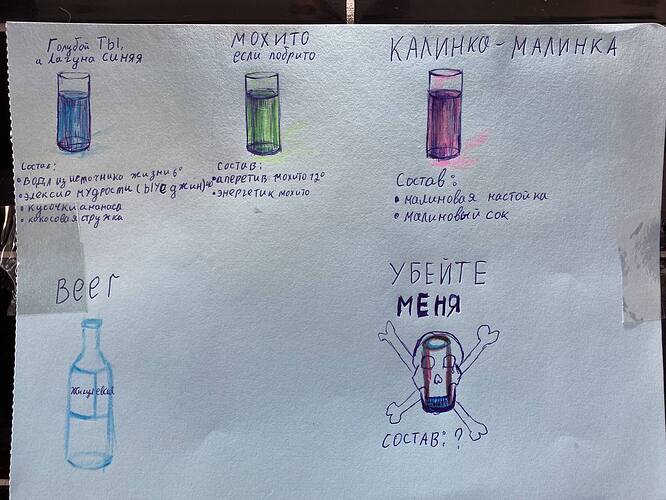 Голубой ТЫ,
а Лагуна синяя
Состав:
• вода из источника жизни 6°
• элексир мудрости (
джин)
• кусочки ананаса
• кокосовая стружка
МОХИТО
если побрито
СОСТАВ:
• аперетив мохито 12°
• энергетик мохито
КАЛИНКО-МАЛИНКА
Состав:
• малиновая настойка
• малиновый сок
Beer
Жигулевская
УБЕЙТЕ
МЕНЯ
СОСТАВ: ?